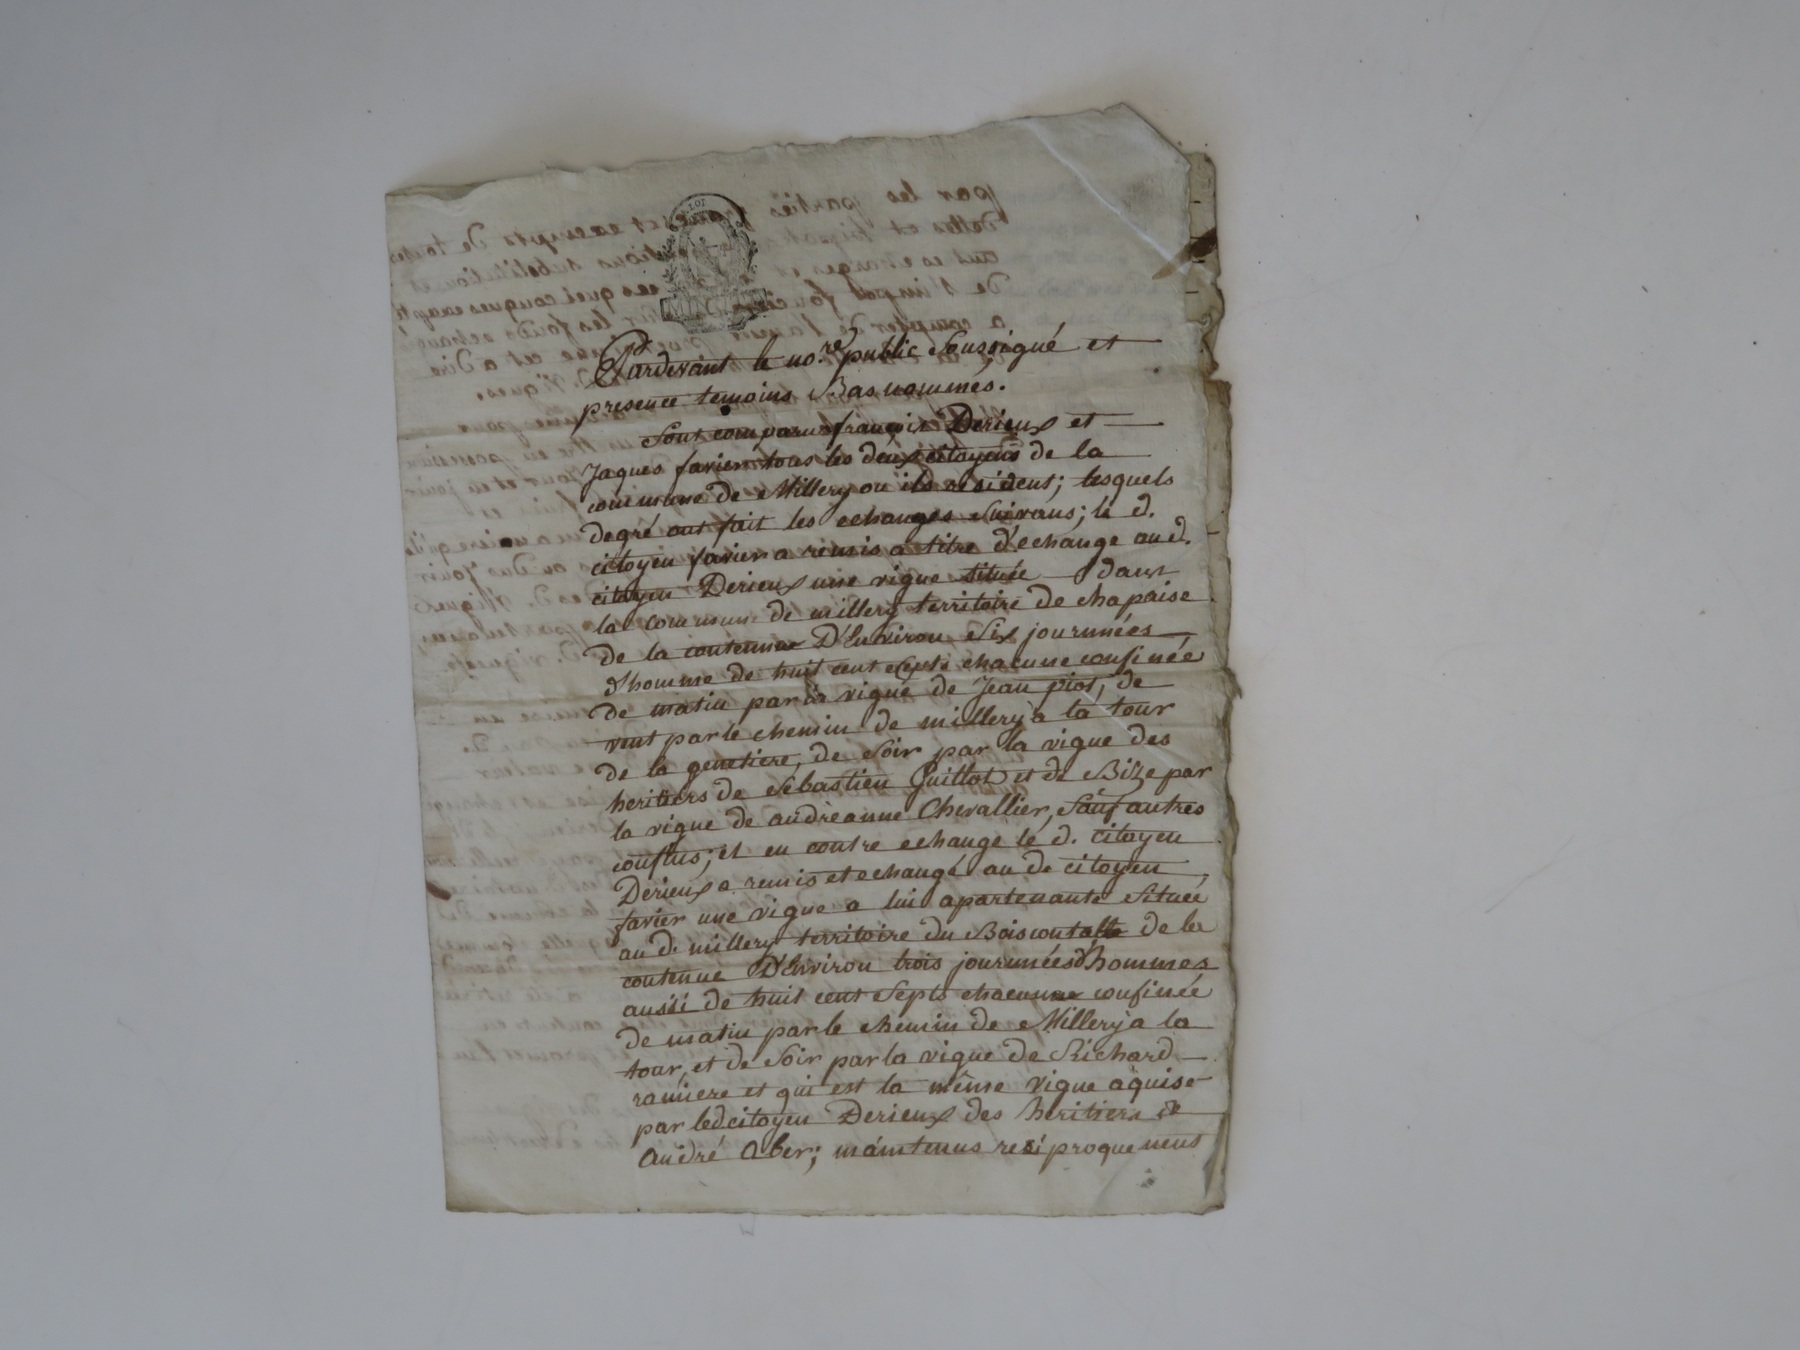 LA LOI
Pardevant le no.re public Soussigné et
presence temoins Bas nommés.
Sont comparus françois Derieux et
Jaques favier tous les deux citoyens de la
commune de Millery ou ils resident; lesquels
degré ont fait les echanges Suivans; le d.
citoyen favier a remis a titre d'echange au d.
citoyen Derieux une vigne située dans
la commune de millery territoire de chapaise
de la contenue D'Environ Six journnées
d'homme de huit cent Septs chacune confinée
de matin par la vigne de Jean piot, de
vent par le chemin de millery a la tour
de la genetiere, de Soir par la vigne des
heritiers de Sébastien Guillot et de Bize par
la vigne de andréanne Chevallier, Sauf autres
confins; et en contre echange le d. citoyen
Derieux a remis et echangé au de citoyen
favier une vigne a lui apartenante Située
au d. millery territoire du Bois contalle de la
contenue D'Environ trois journnées d'hommes
aussi de huit cent Septs chacune confinée
de matin par le chemin de Millery a la
tour, et de Soir par la vigne de Richard
ramiere et qui est la même vigne aquise
par led citoyen Derieux des heritiers de
andré Aber; maintenus resiproquement